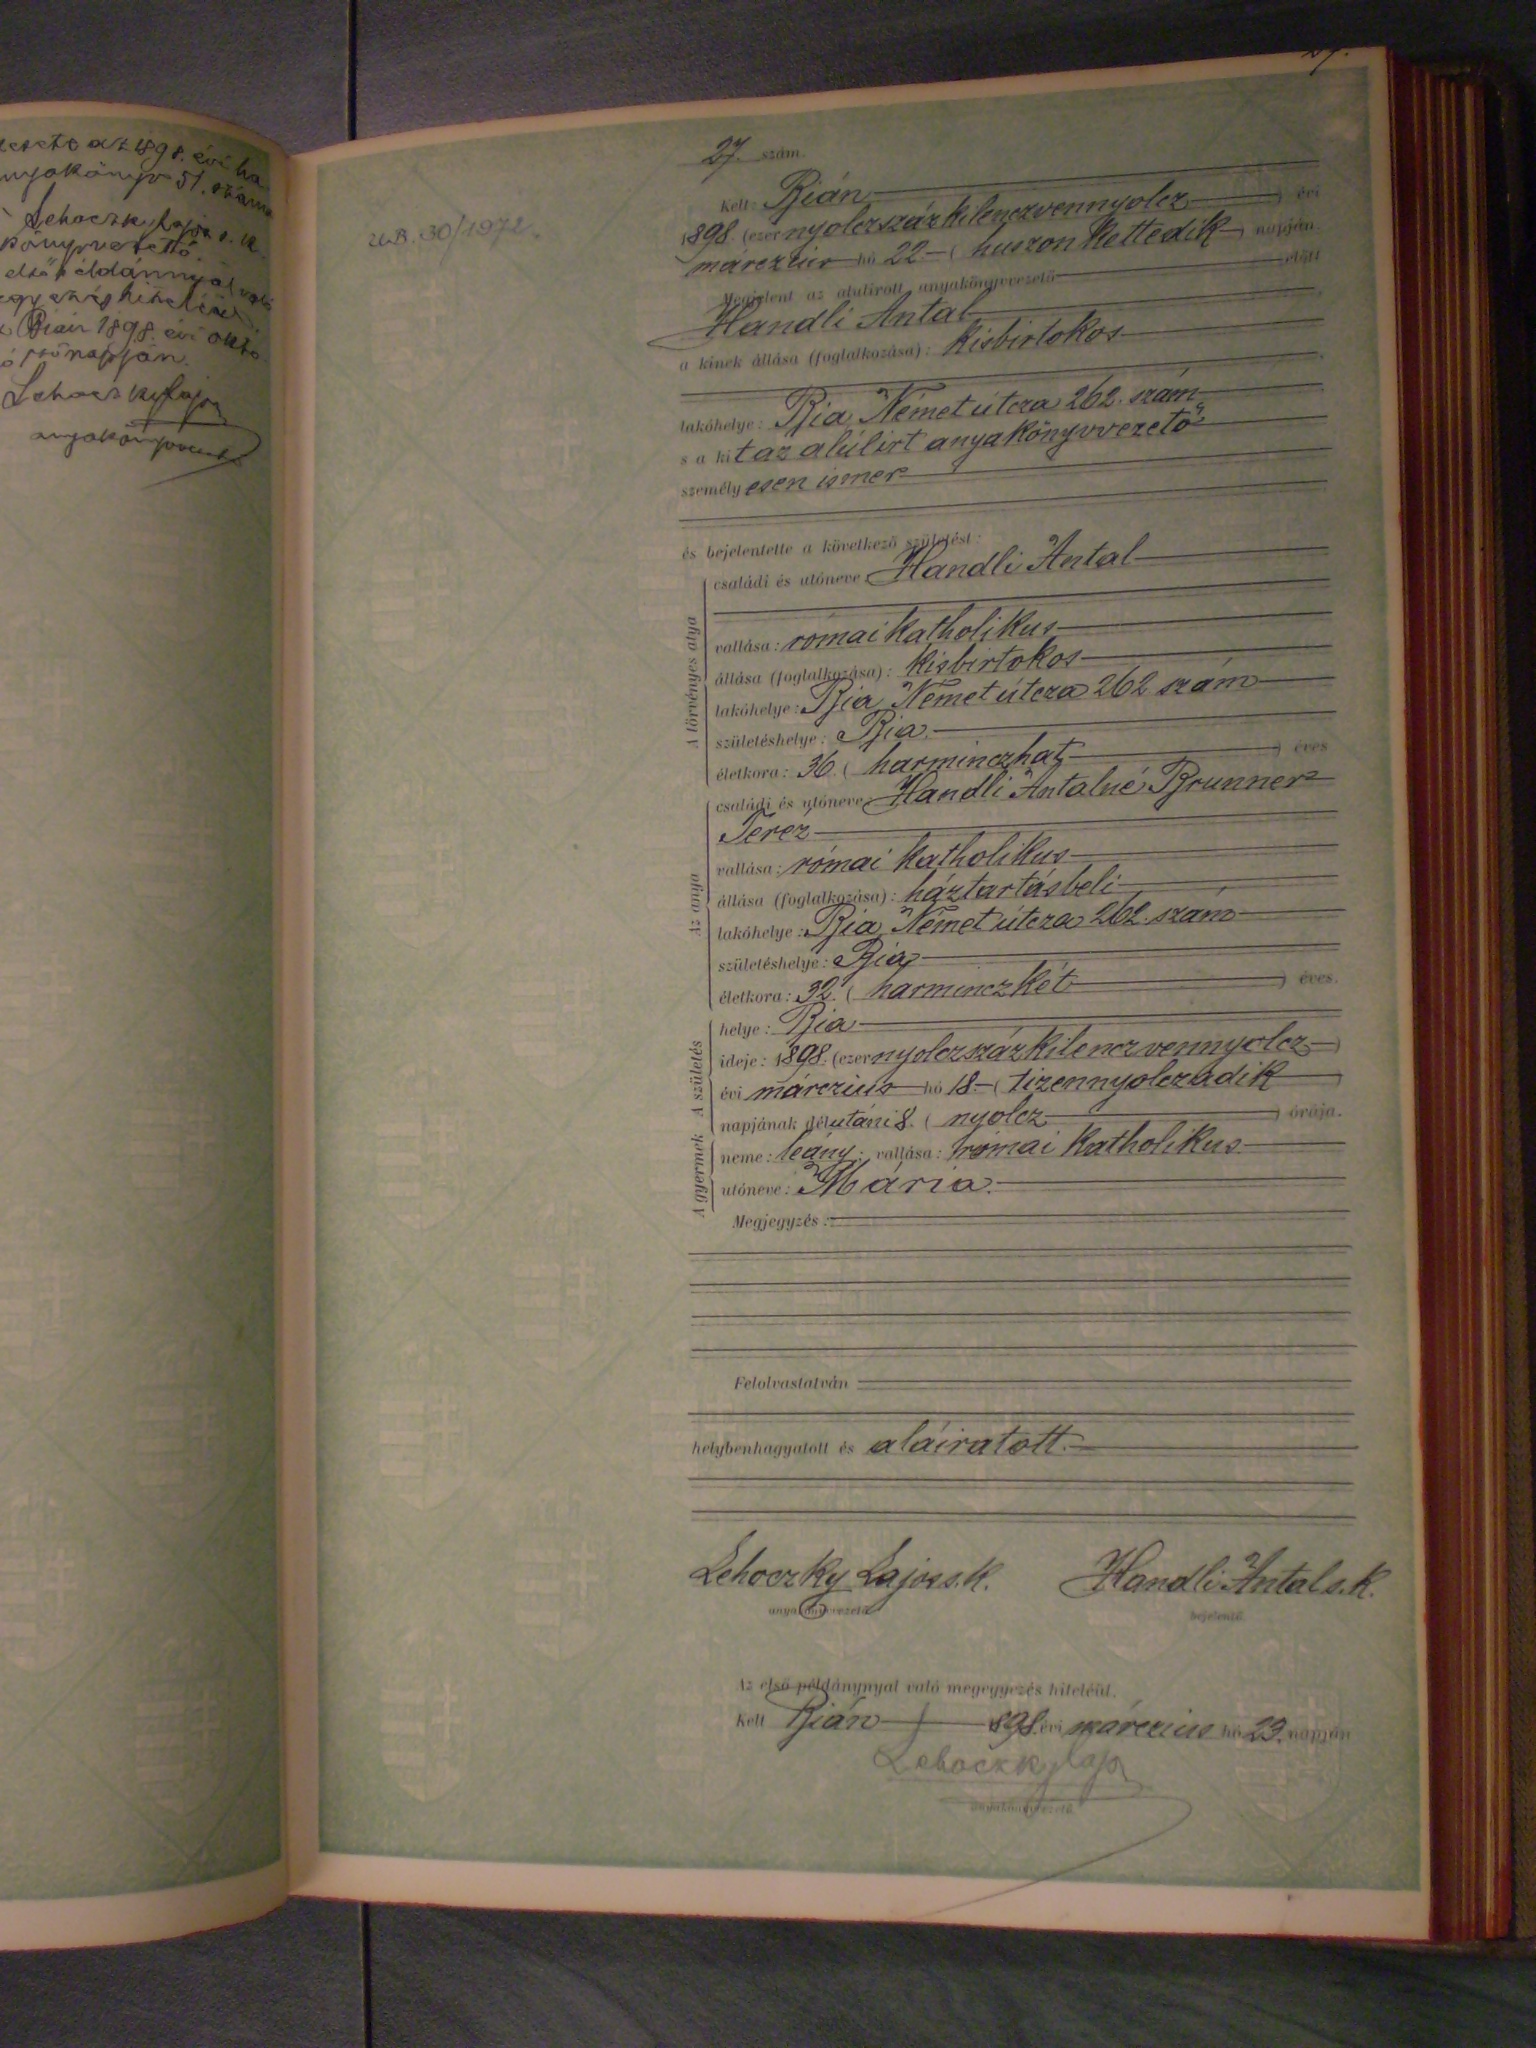 az 1898. évi ha
anyakönyv 51. száma
Lehoczky Lajos s. k.
könyvvezető.
első példánnyal való
egyezés hiteléül.
Bián 1898. évi okto
napján.
Lehoczky Lajos
anyakönyvvezető
27.
27. szám.
30/1972.
Kelt: Bián
1898. (ezernyolczszázkilenczvennyolcz) évi
márczius hó 22 (huszonkettedik) napján
Megjelent az alulirott anyakönyvvezető előtt
Handli Antal
a kinek állása (foglalkozása): kisbirtokos
lakóhelye: Bia Német útcza 262. szám
s a kit az alúlirt anyakönyvvezető
személyesen ismer
és bejelentette a következő születést:
A törvényes atya
családi és utóneve: Handli Antal
vallása: római katholikus
állása (foglalkozása): kisbirtokos
lakóhelye: Bia Német útcza 262 szám
születéshelye: Bia.
életkora: 36. (harminczhat) éves
Az anya
családi és utóneve: Handli Antalné Brunner
Teréz
vallása: római katholikus
állása (foglalkozása): háztartásbeli
lakóhelye: Bia Német útcza 262. szám
születéshelye: Bia
életkora: 32. (harminczkét) éves.
A születés
helye: Bia
ideje: 1898. (ezernyolczszázkilenczvennyolcz)
évi márczius hó 18 (tizennyolczadik
napjának délutáni 8. (nyolcz) órája.
A gyermek
neme: leány; vallása: római katholikus
utóneve: Mária.
Megjegyzés:
Felolvastatván
helybenhagyatott és aláiratott.
Lehoczky Lajos s. k. Handli Antal s. k.
anyakönyvvezető bejelentő
Az első példánynyal való megegyezés hiteléül.
Kelt Bián 1898. évi márczius hó 23. napján
Lehoczky Lajos
anyakönyvvezető